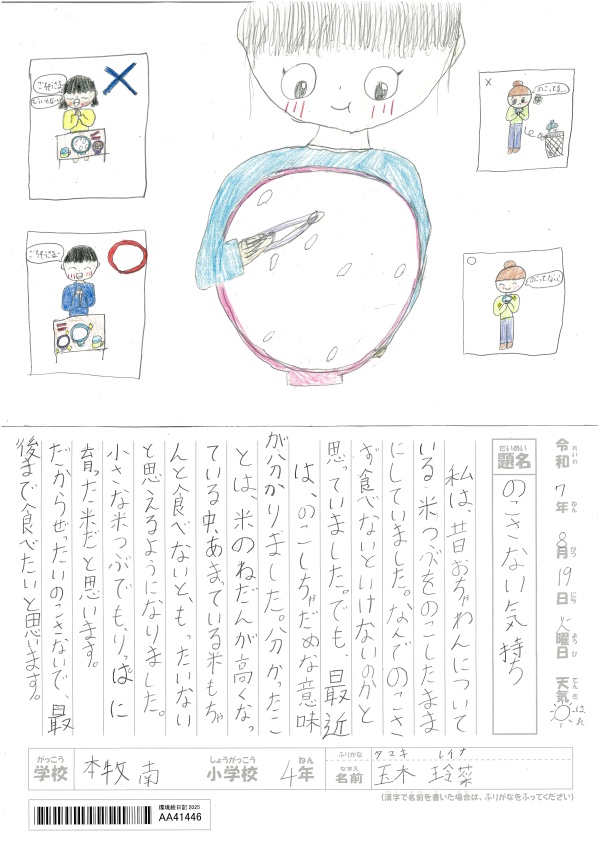 ごちそうさまー
ごちそうさまー
×
のこってる。
○
のこってない!
令和7年8月19日火曜日 天気 はれ
れいわ ねん がつ にち ようび てんき
だいめい
題名 のこさない気持ち
私は、昔おちゃわんについて
いる米つぶをのこしたまま
にしていました。なんでのこさ
ず食べないといけないのかと
思っていました。でも、最近
は、のこしちゃだめな意味
が分かりました。分かったこ
とは、米のねだんが高くなっ
ている中、あまっている米もちゃ
んと食べないと、もったいない
と思えるようになりました。
小さな米つぶでもりっぱに
育った米だと思います。
だからぜったいのこさないで、最
後まで食べたいと思います。
がっこう しょうがっこう ねん ふりがな タマキ レイナ
学校 本牧南 小学校 4年 なまえ 名前 玉木 玲菜
(漢字で名前を書いた場合は、ふりがなをふってください)
環境絵日記 2025
AA41446